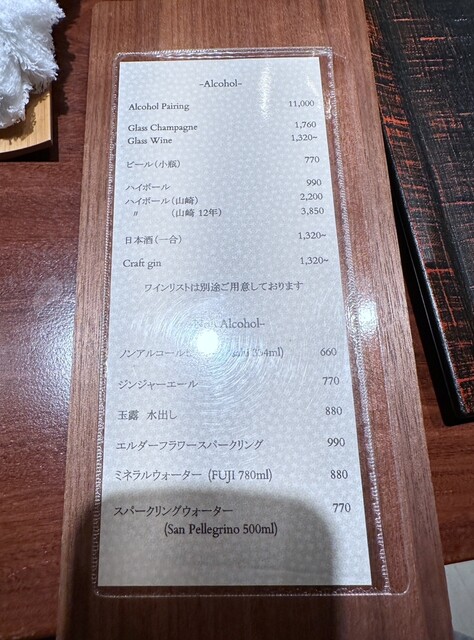 -Alcohol-
Alcohol Pairing 11,000
Glass Champagne 1,760
Glass Wine 1,320~
ビール（小瓶） 770
ハイボール 990
ハイボール（山崎） 2,200
〃 （山崎 12年） 3,850
日本酒（一合） 1,320~
Craft gin 1,320~
ワインリストは別途ご用意しております
-Non Alcohol-
ノンアルコール 334ml) 660
ジンジャーエール 770
玉露 水出し 880
エルダーフラワースパークリング 990
ミネラルウォーター (FUJI 780ml) 880
スパークリングウォーター 770
(San Pellegrino 500ml)